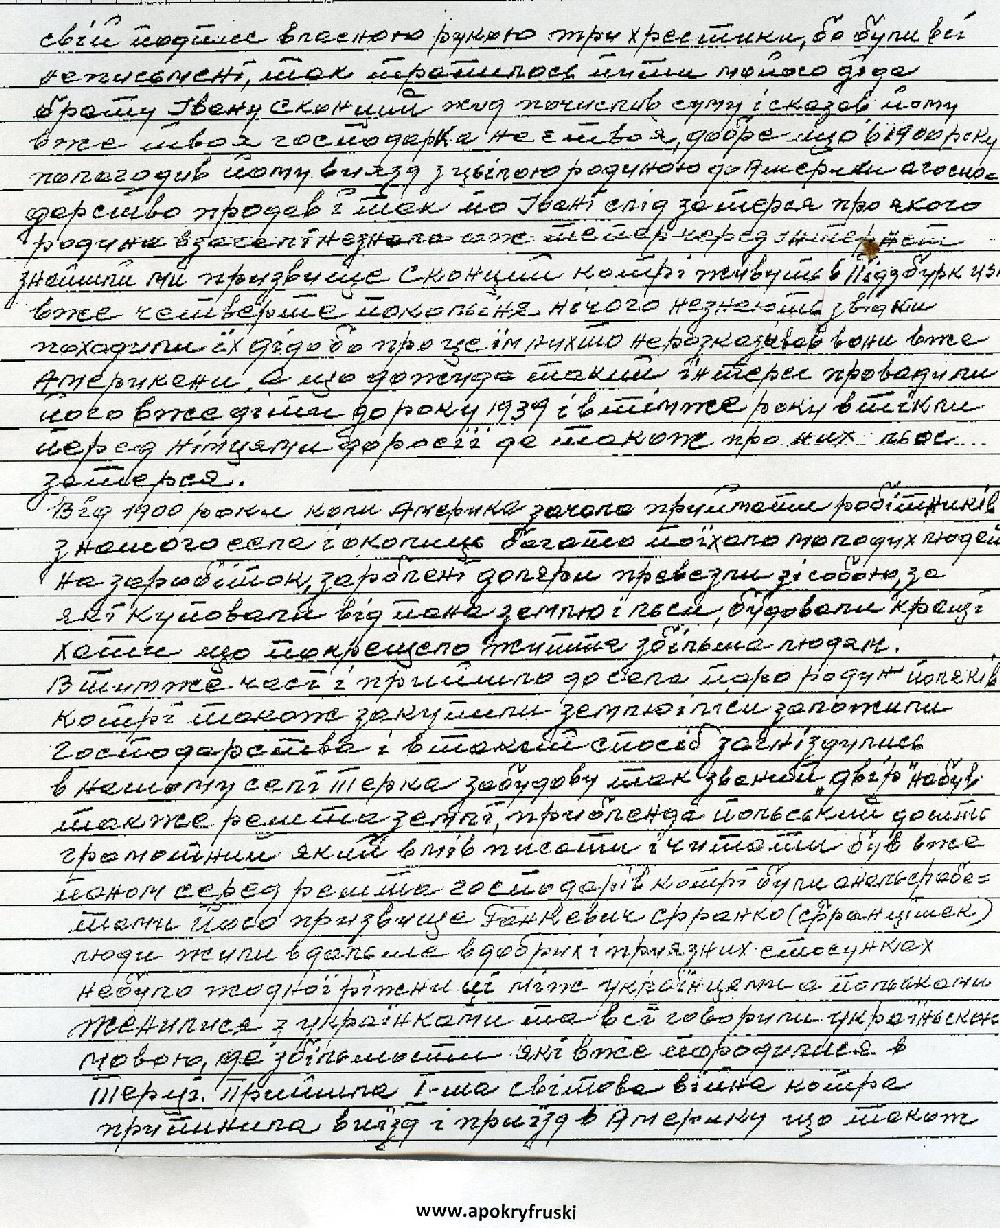 свій подпис власною рукою три хрестики, бо були всі
неписьмені, так трапилось і мойого діда
брату Івану Сконций жид почислив суму і сказав йому
вже твоя господарка не є твоя, добре що в 1900 року
полагодив йому виязд з цьілою родиною до Америки а госпо=
дарство продав і так по Івані слід затерся про якого
родина взагалі незнала аж тепер через інтернет
знайшли ми призвище Сконций котрі живуть в Підзбурк
вже четверте покольіня нічого незнають звідки
походили їх дідо бо про це їм нихто нерозказував вони вже
Америкени, а що до жида такий інтерес провадили
його вже діти до року 1939 і в тімже року втікли
перед німцями до росії де також про них льос...
затерся.
Від 1900 роки коли Америка зачала приймати робітників
з нашого села і околиць багато поїхало молодих людей
на заробіток, зароблені доляри превезли зі собою, за
які куповали від пана землю і льси, будовали кращі
хати що покрещело життя збільша людям.
В тимже часі і прийшло до села пара родин поляків
котрі також закупили землю і льси заложили
господарства і в такий спосіб загніздились
в нашому селі Терка забудову так званий „двір" набув
также решта землі, прибленда польський дошть
грамотний який вмів писати і читати був вже
паном серед решта господарів котрі були анальфабе=
тами Його призвище Ганкевич Франко (Францішек)
люди жили вдальше в добрих і приязних стосунках
небуло жодної ріжниці між українцями а польками
женилися з українками та всі говорили українською
мовою, де збільшости які вже породилися в
Терці. Прийшла І-ша світова війна котра
припинила виїзд і приїзд в Америку що також
www.apokryfruski